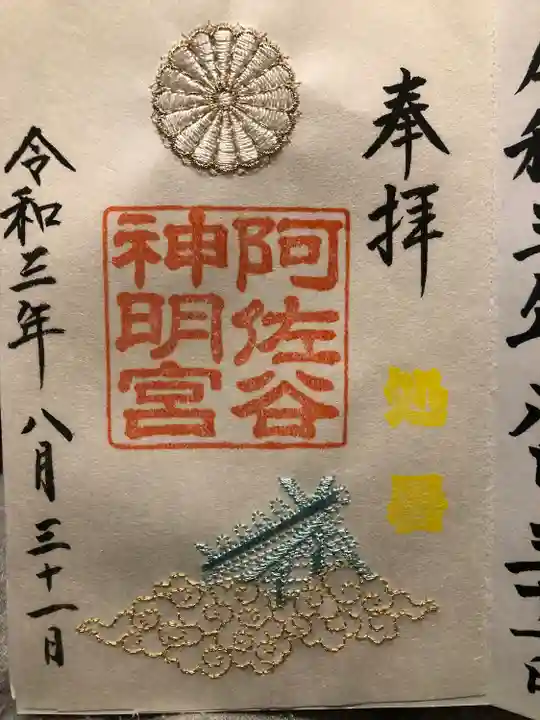 奉拝
処暑
阿佐谷
神明宮
令和三年八月三十一日